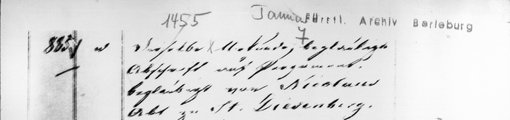 1455 Januar Fürstl. Archiv Berleburg
7
885 d Dieselbe Urkunde, beglaubigte
Abschrift auf Pergament.
beglaubigt von Nicolaus
Abt zu St. Disenberg.